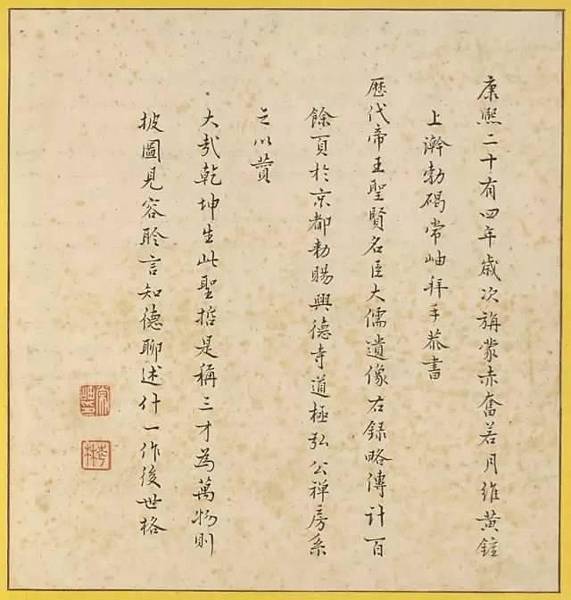 康熙二十有四年歲次旃蒙赤奮若月維黃鍾
上澣勃碣常岫拜手恭書
歷代帝王聖賢名臣大儒遺像右錄略傳計百
餘頁於京都勅賜興德寺道極弘公禪房系
之以贊
大哉乾坤生此聖哲是稱三才為萬物則
披圖見容聆言知德聊述什一作後世格